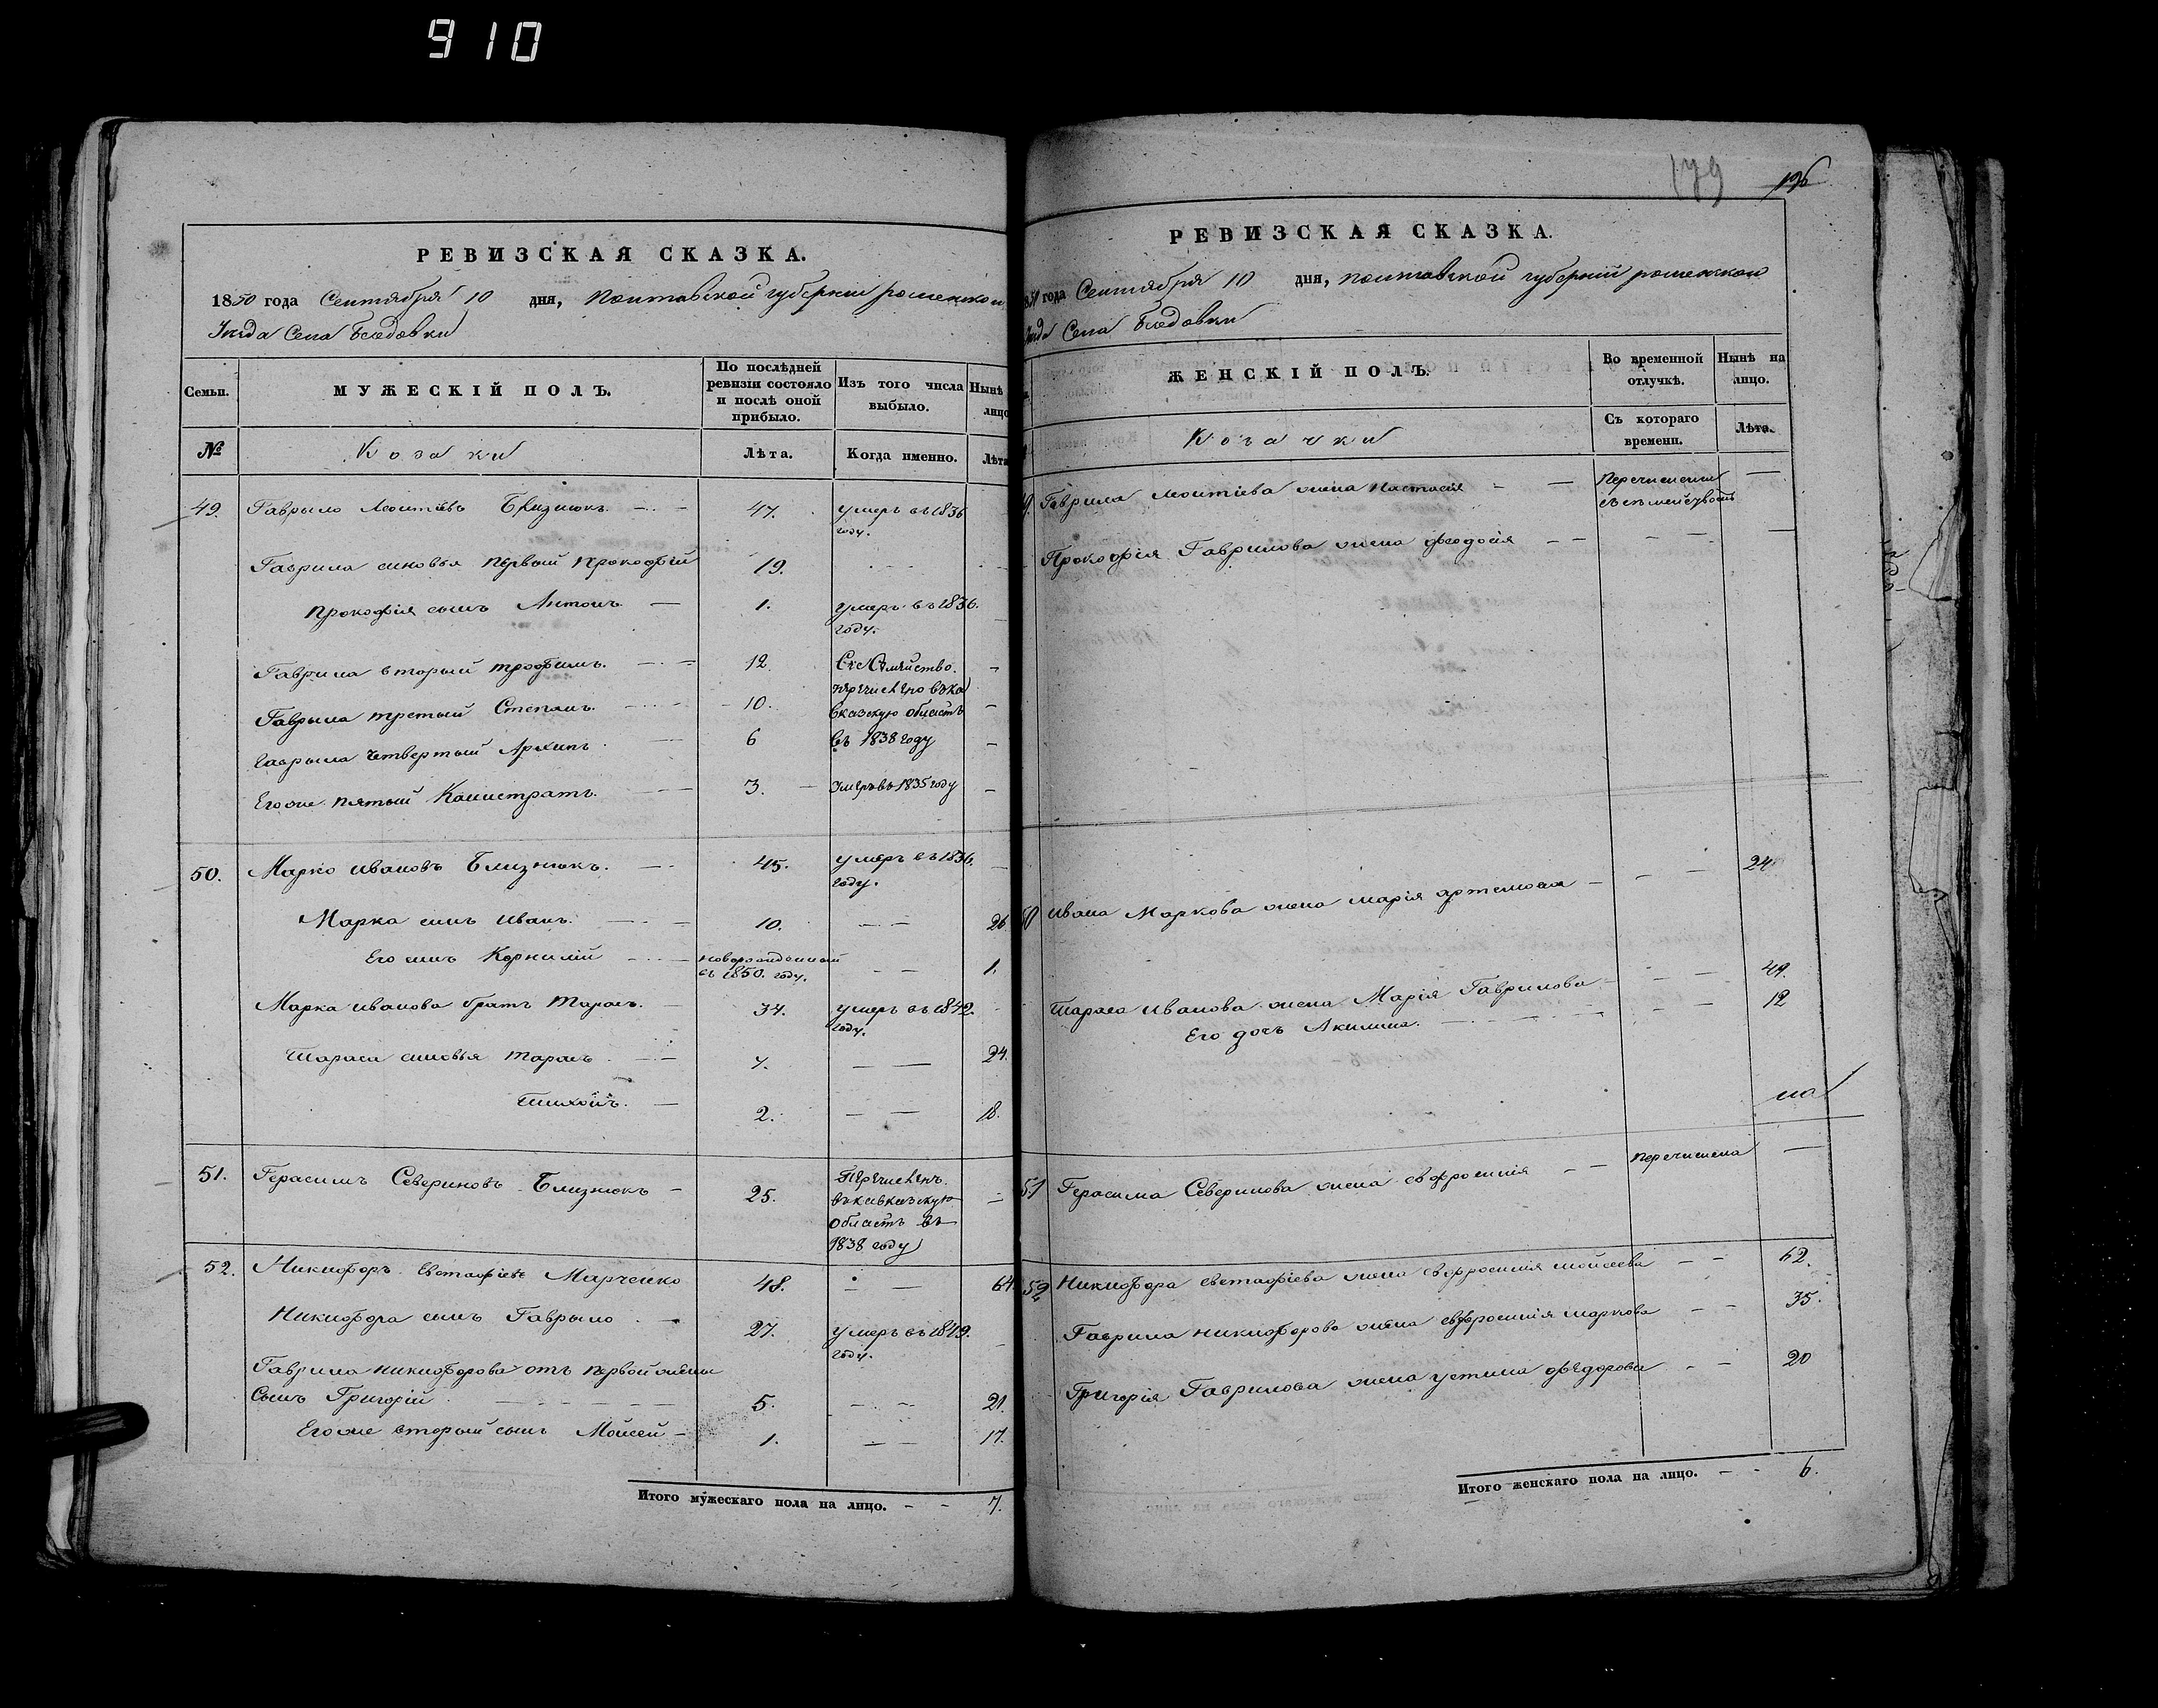 910
РЕВИЗСКАЯ СКАЗКА.
1850 года Сентября 10 дня, Полтавской губерніи роменскои
Уезда Села Беседовки
Семьи. МУЖЕСКІЙ ПОЛЪ. По послѣдней ревизіи состояло и послѣ оной прибыло. Изъ того числа выбыло. Нынѣ лицо
№ Козаки Лѣта. Когда именно. Лѣта
49. Гаврыло Леонтіевъ Близнюкъ. 47. умеръ въ 1836
году.
Гаврила сыновья первый Прокофій 19.
Прокофія сынъ Антонъ. 1. умеръ въ 1836.
году.
Гаврила вторый трофимъ. 12. Съ Семейство.
перечислено въ ка
Гаврыла третый Степанъ. 10. вказскую область
Гаврыла четвертый Архипъ. 6 въ 1838 году
Его же пятый Калистратъ. 3. Умеръ въ 1835 году
50. Марко ивановъ Близнюкъ. 45. умеръ въ 1836.
году.
Марка сынъ иванъ. 10. 26
Его сынъ Корнилій новорожденный
въ 1850. году. 1.
Марка иванова братъ Тарасъ. 34. умеръ въ 1842.
году.
Тараса сыновья Тарасъ. 7. 24.
Тихонъ. 2. 18.
51. Герасимъ Севериновъ Близнюкъ 25. Перечисленъ
въ кавказскую
область въ
1838 году
52. Никифоръ Евстафіевъ Марченко 48. 64.
Никифора сынъ Гаврыло 27. умеръ въ 1849.
году.
Гаврила никифорова отъ первой жены
Сынъ Григорій 5. 21.
Его же вторый сынъ Мойсей 1. 17.
Итого мужескаго пола на лицо. 7.
179 196
РЕВИЗСКАЯ СКАЗКА.
1850 года Сентября 10 дня, полтавской губерній роменскои
Уезда Села Беседовки
ЖЕНСКІЙ ПОЛЪ. Во временной отлучкѣ. Нынѣ на лицо.
Козачки Съ котораго времени. Лѣта.
49. Гаврила леонтіева жена настасія Перечислены
съ семействомъ
Прокофія Гаврилова жена феодосія
50 ивана Маркова жена марія артемова 24
Тараса иванова жена Марія Гаврилова 49.
Его дочь Акилина. 12
51 Герасима Северинова жена евфросинія перечислена
52 Никифора евстафіева жена евфросинія мойсеева 62.
Гаврила никифорова жена евфросинія маркова 35.
Григорія Гаврилова жена устина федорова 20
Итого женскаго пола на лицо. 6.